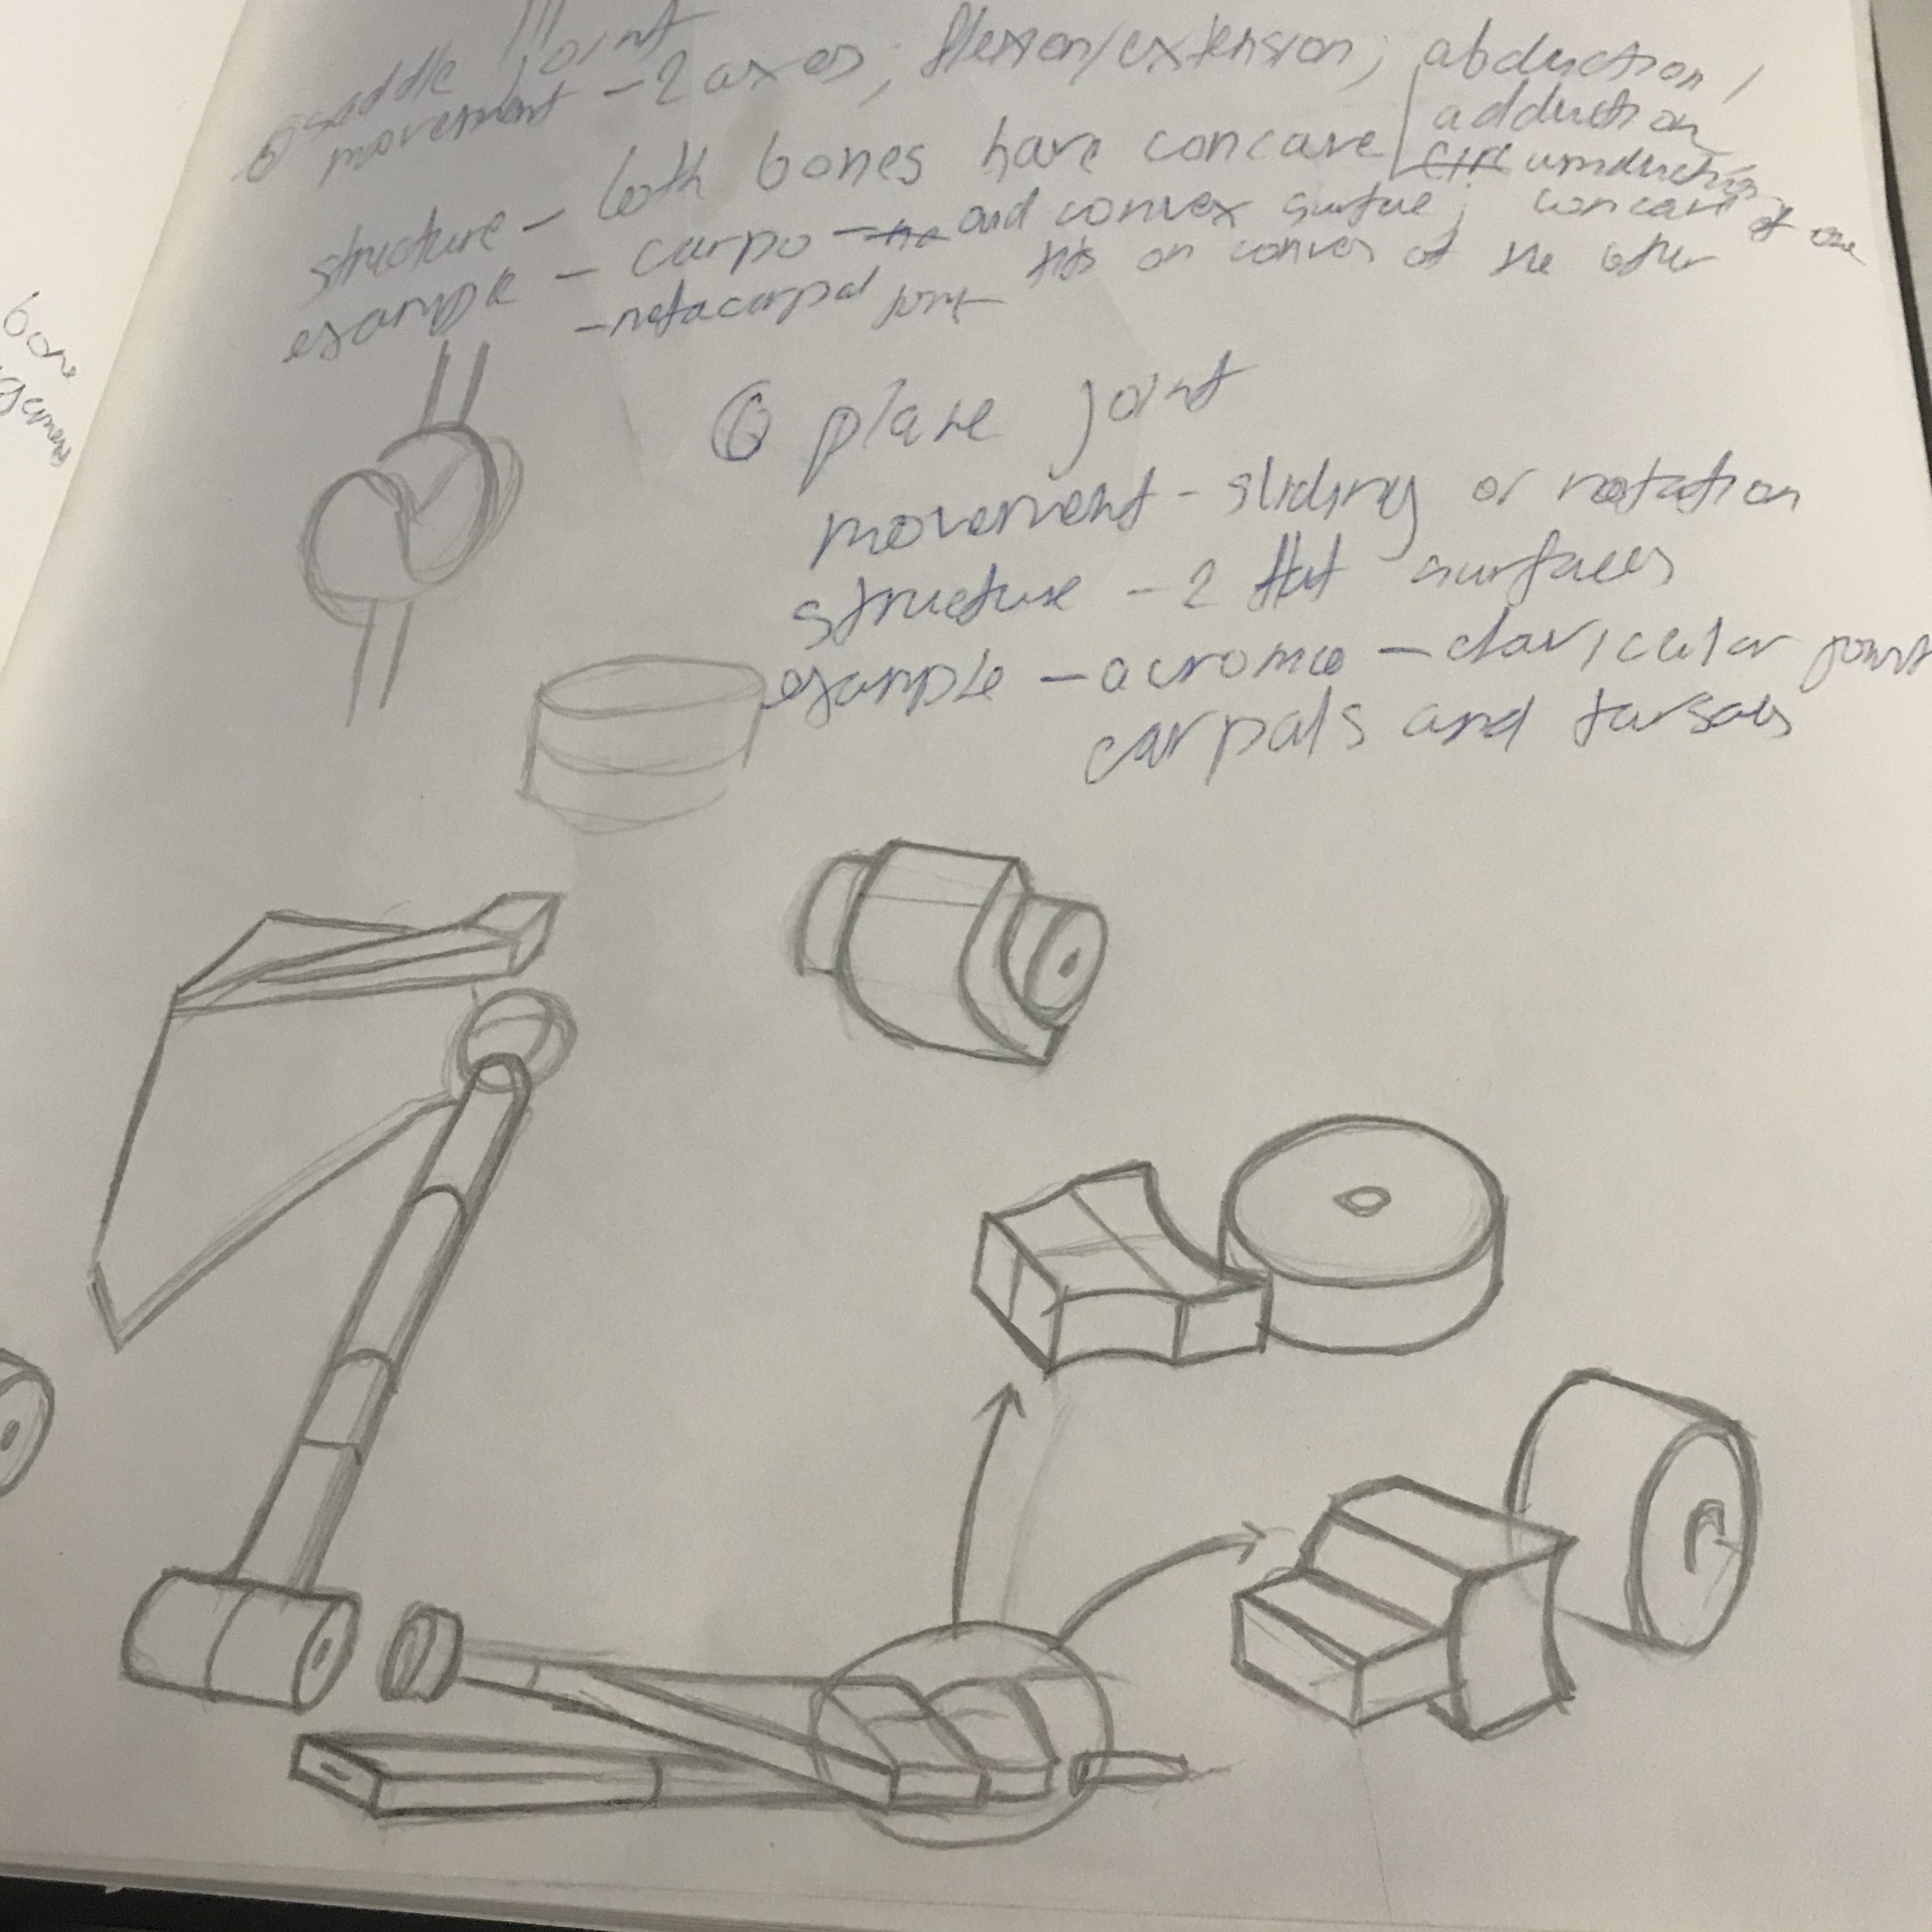 ⑤ saddle joint
movement - 2 axes; flexion/extension; abduction/
adduction
circumduction
structure - both bones have concave
and convex surface; concave of one
fits on convex of the other
example - carpo -
-metacarpal joint
⑥ plane joint
movement - sliding or rotation
structure - 2 flat surfaces
example - acromio - clavicular joint
carpals and tarsals
bone